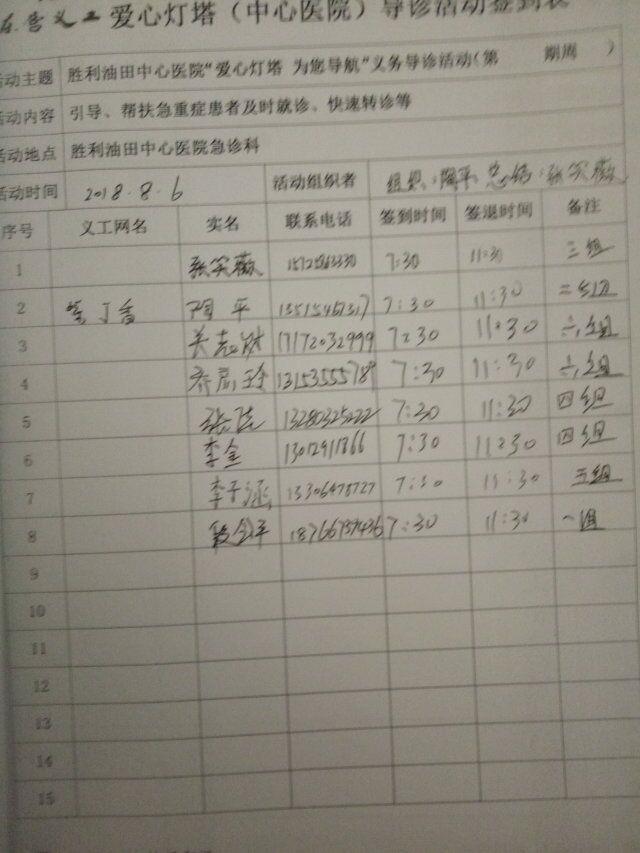 义工 爱心灯塔（中心医院）导诊活动签到表
活动主题 胜利油田中心医院“爱心灯塔 为您导航”义务导诊活动（第 期周 ）
活动内容 引导、帮扶急重症患者及时就诊、快速转诊等
活动地点 胜利油田中心医院急诊科
活动时间 2018.8.6 活动组织者 组织：陶平 总结：张笑薇
序号 义工网名 实名 联系电话 签到时间 签退时间 备注
1 张笑薇 7:30 11:30 三组
2 丁香 陶平 7:30 11:30 二组
3 17172032999 7:30 11:30 六组
4 7:30 11:30 六组
5 13280325222 7:30 11:30 四组
6 李金 13012911866 7:30 11:30 四组
7 李子涵 13306478727 7:30 11:30 五组
8 18766757436 7:30 11:30 一组
9
10
11
12
13
14
15